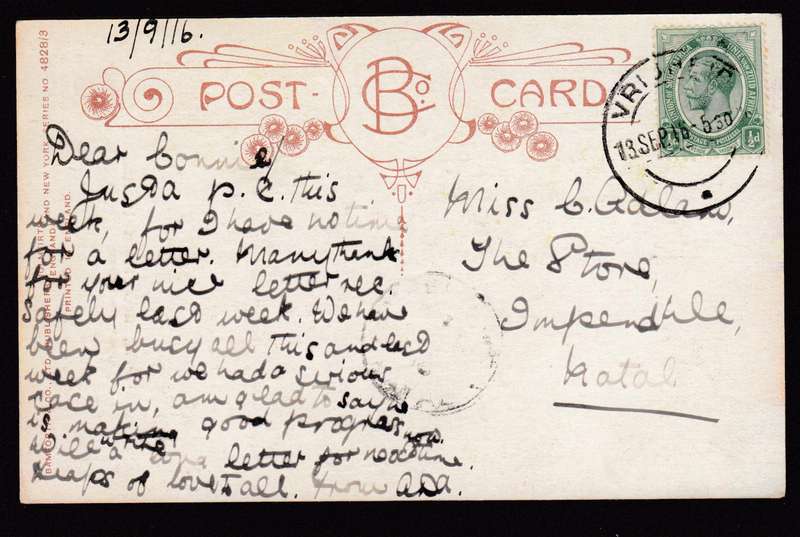 13/9/16.
POST- B Co. CARD
VRIJ
13 SEP 16 5 30
½d
Dear Connie
Just a p.c. this
week, for I have no time
for a letter. Many thanks
for your nice letter rec.
safely last week. We have
been busy all this and last
week for we had a serious
case in, am glad to say he
is making good progress now.
Will write a long letter for next time.
Heaps of love to all. from Ada.
Miss C. Adlam,
The Store,
Impendhle,
Natal
SERIES NO. 4828/3
PRINTED IN ENGLAND.